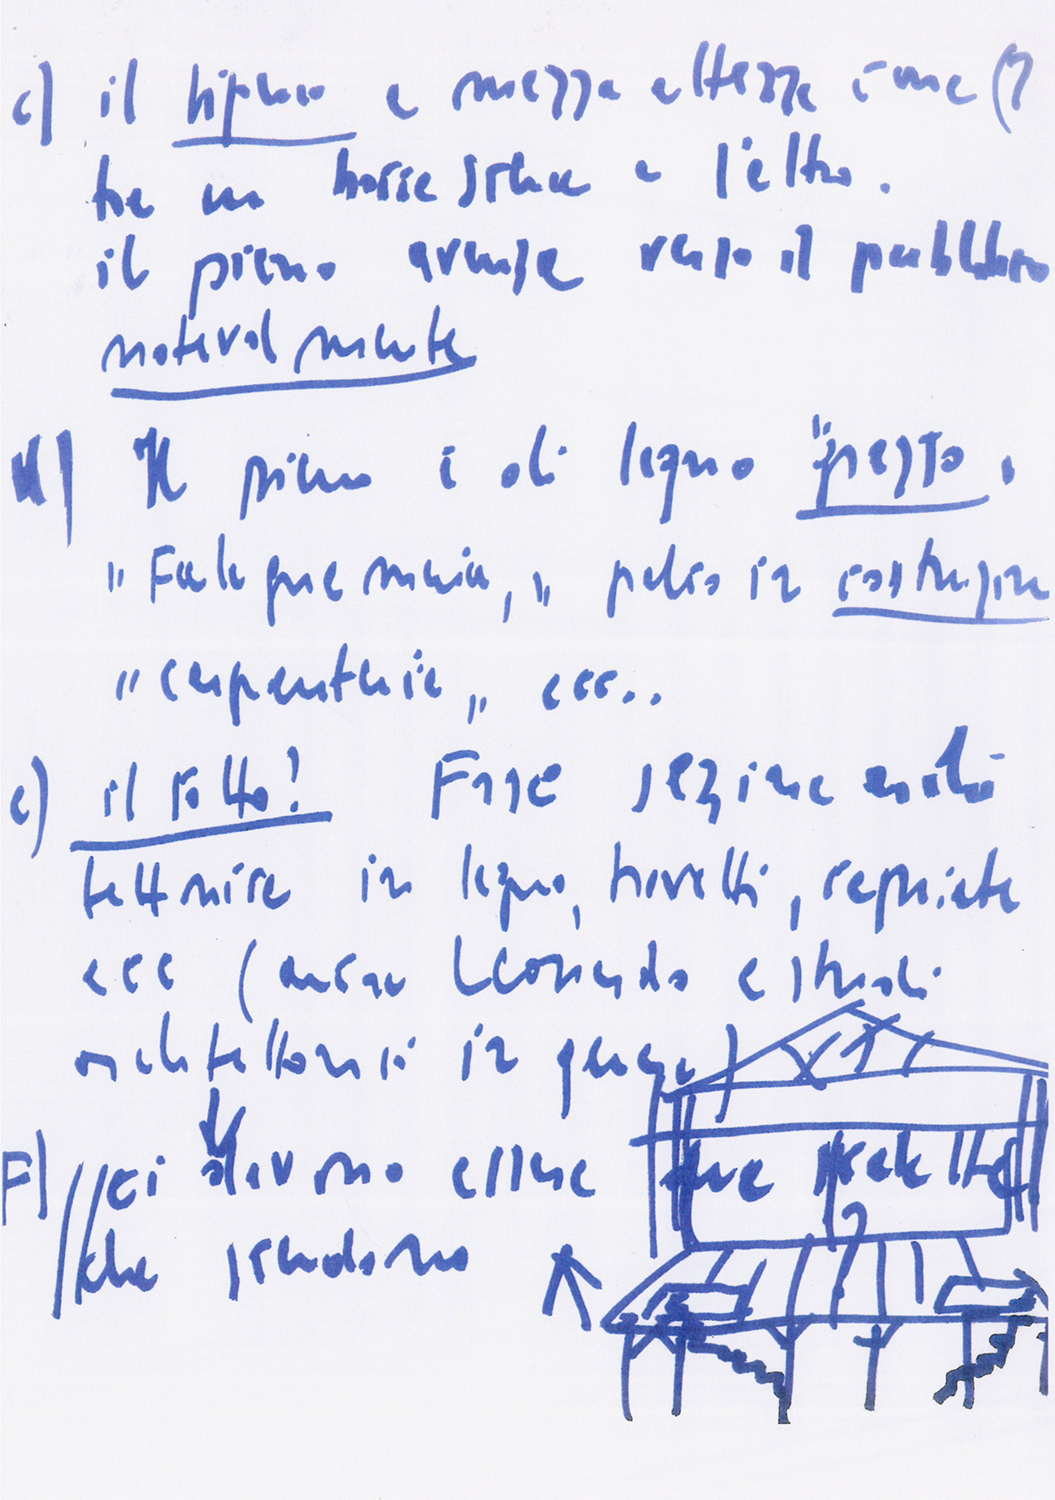 c) il ripiano a mezza altezza come (?
tra un boccascena e l'altro.
il piano avanza verso il pubblico
notevolmente
d) Il piano è di legno "grezzo,
"Falegnameria," palco in costruzione
"carpenteria" ecc..
e) il sotto! Forse
tettonica in legno, travetti, capriate
ecc (ancora Leonardo e studi
architettonici in genere)
F) // ci devono essere due scalette
che scendono